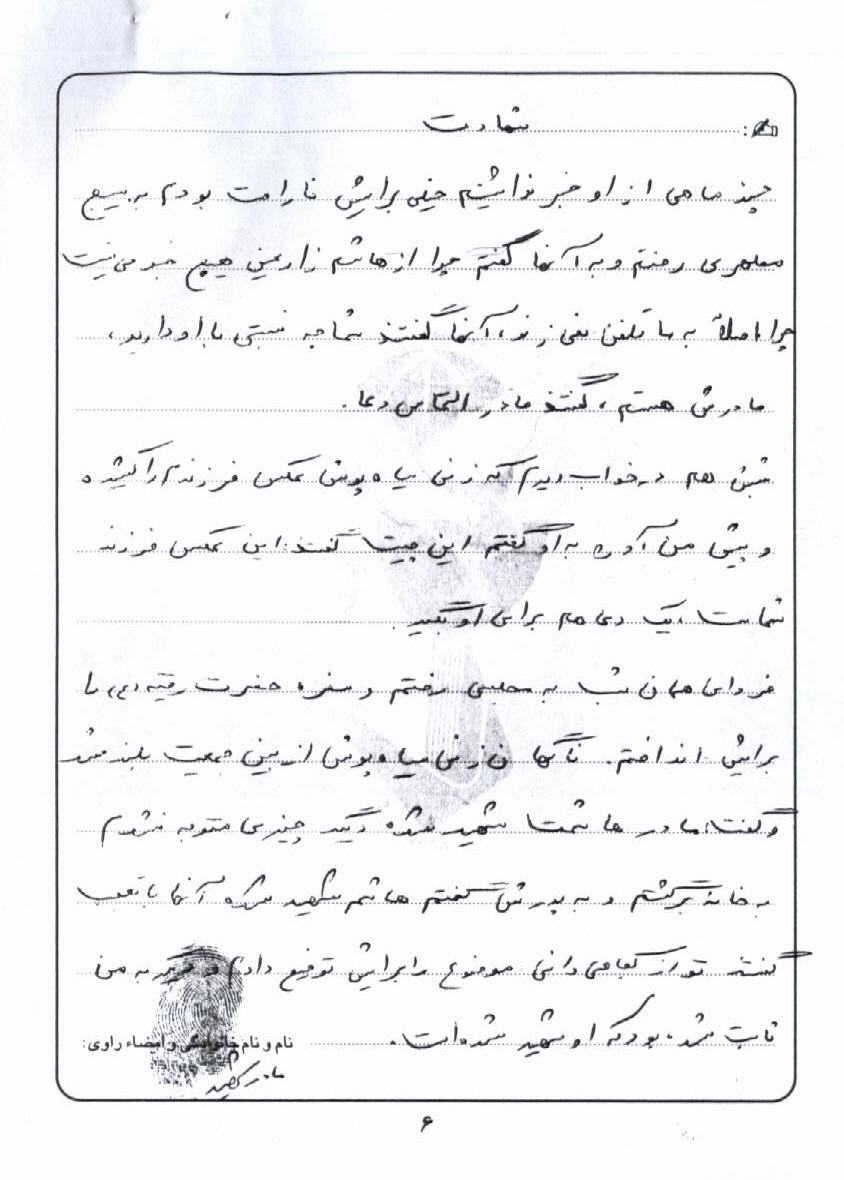 شهادت
چند ماهی از او خبر نداشتیم خیلی برایش ناراحت بودم به بسیج
مطهری رفتم و به آنها گفتم چرا از هاشم زارعین هیچ خبری نیست
چرا اصلاً به ما تلفن نمی زند، آنها گفتند شما چه نسبتی با او دارید،
مادرش هستم، گفتند مادر التماس دعا.
شبش هم در خواب دیدم که زنی سیاه پوش عکس فرزندم را کشیده
و پیش من آورد به او گفتم این چیست گفت: این عکس فرزند
شماست، یک دعای هم برای او بگیرید.
فردای همان شب به مجلسی رفتم و سفره حضرت رقیه (س) را
برایش انداختم. ناگهان زنی سیاه پوش از بین جمعیت بلند شد
و گفت: مادر هاشمت شهید شده دیگر چیزی متوجه نشدم
به خانه برگشتم و به پدرش گفتم هاشم شهید شده آنها با تعجب
گفتند تو از کجا می دانی موضوع را برایش توضیح دادم و دیگر به من
ثابت شده بود که او شهید شده است.
نام و نام خانوادگی و امضاء راوی:
مادر شهید
۶